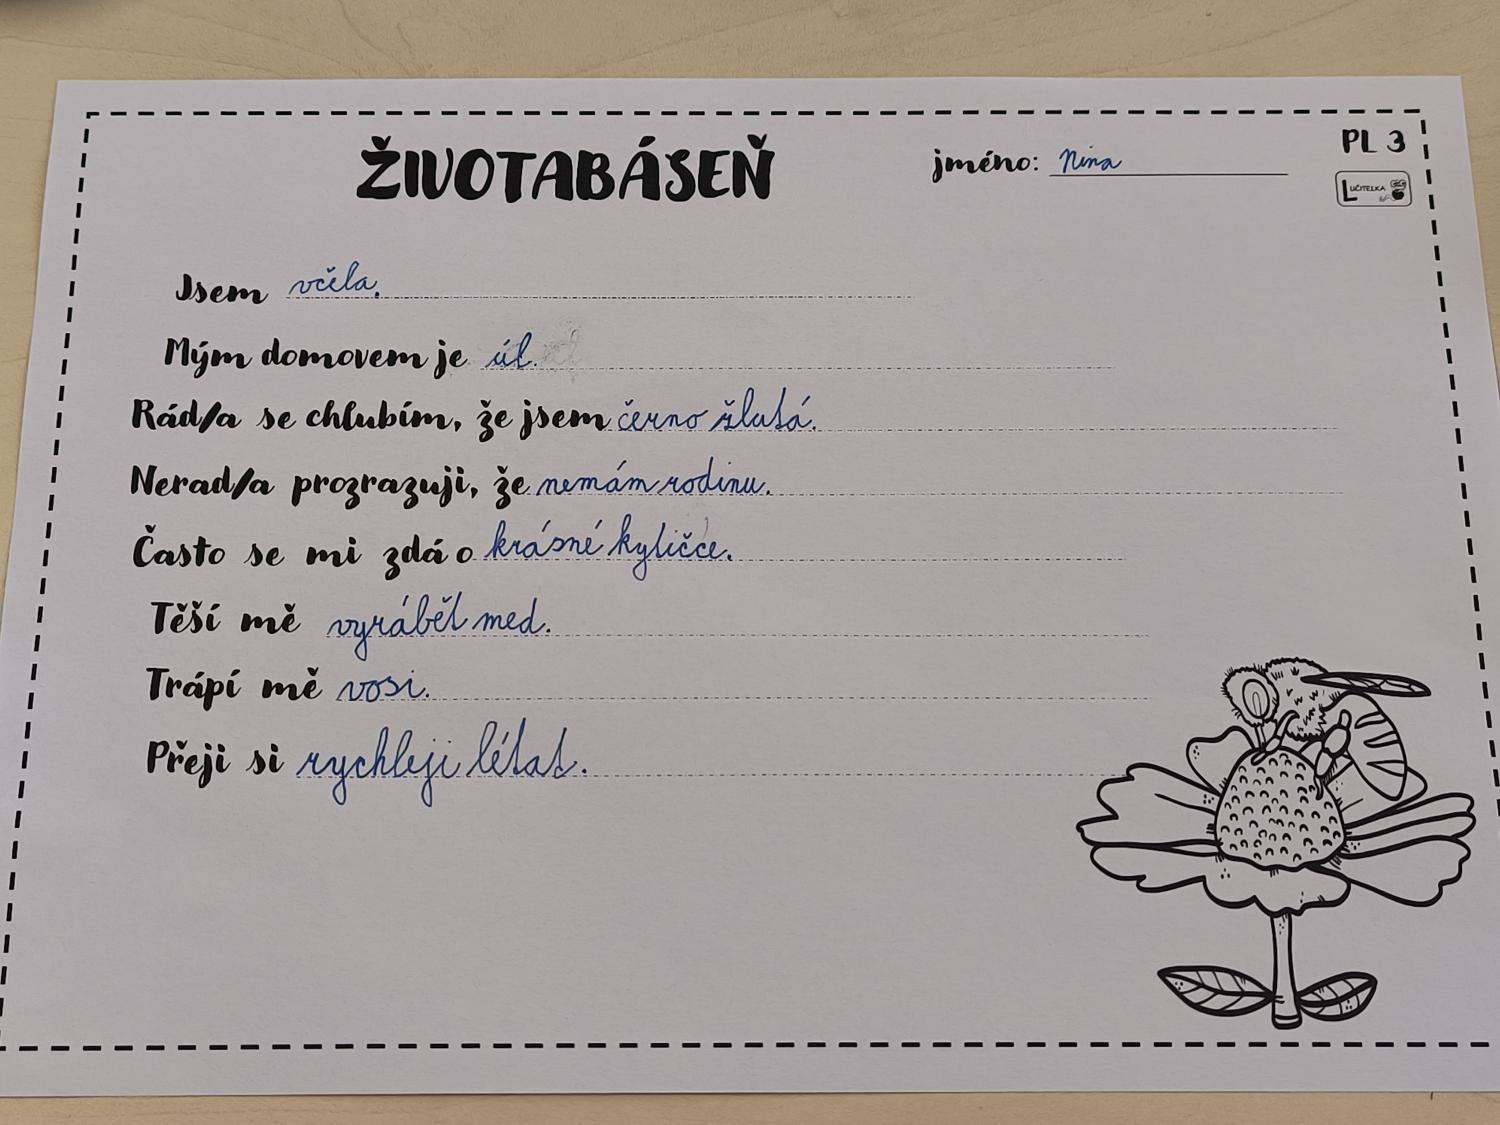 ŽIVOTABÁSEŇ
jméno: Nina
PL 3
UČITELKA
Jsem včela.
Mým domovem je úl.
Rád/a se chlubím, že jsem černo žlutá.
Nerad/a prozrazuji, že nemám rodinu.
Často se mi zdá o krásné kyličce.
Těší mě vyrábět med.
Trápí mě vosi.
Přeji si rychleji létat.